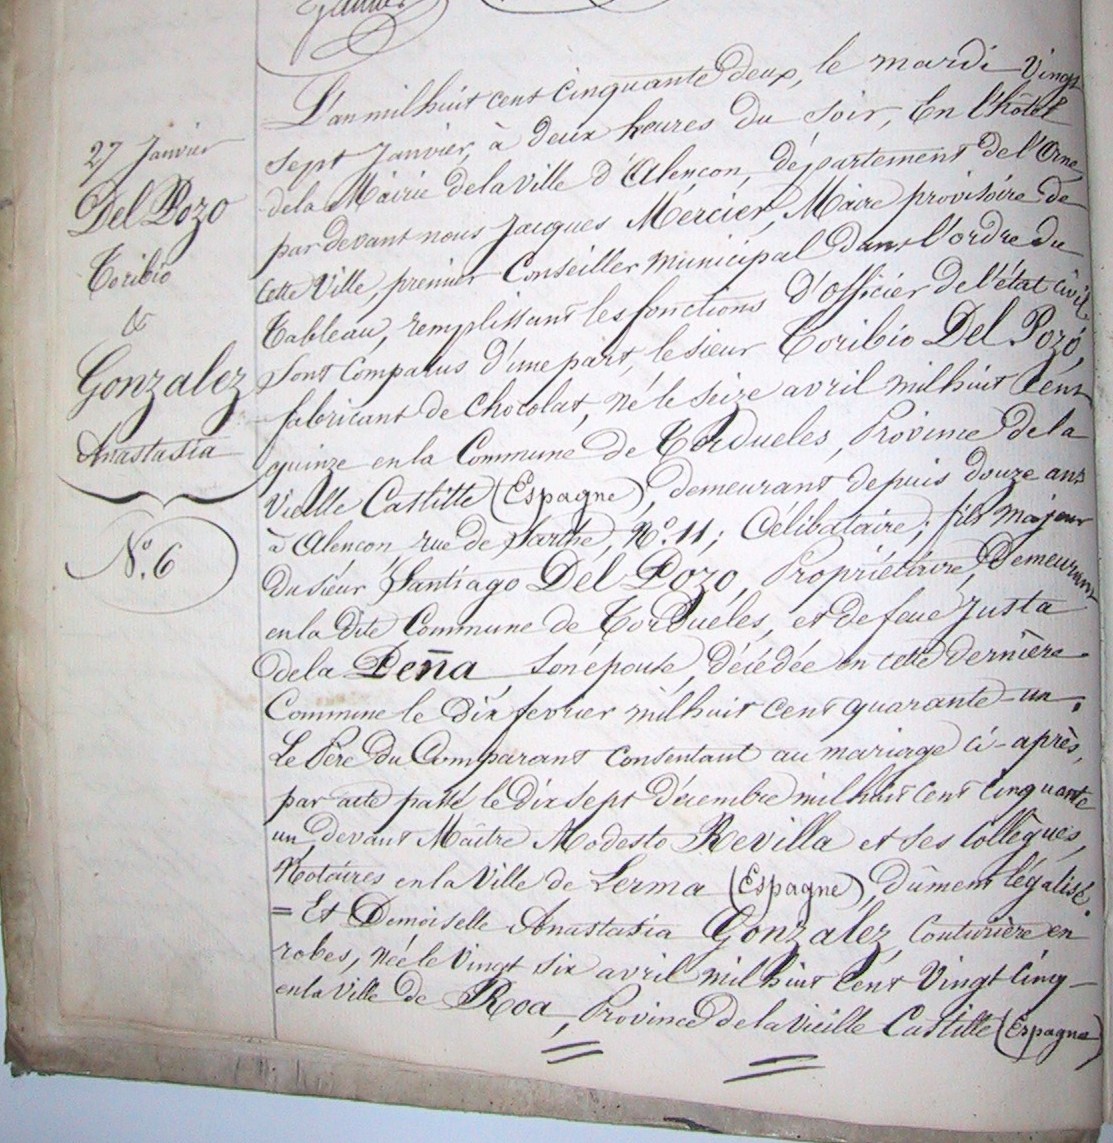 27 Janvier
Del Pozo
Toribio
&
Gonzalez
Anastasia
N.º 6
L'an mil huit cent cinquante deux, le mardi vingt
sept Janvier, à deux heures du soir, En l'hôtel
de la Mairie de la Ville d'Alençon, département de l'Orne,
par devant nous Jacques Mercier, Maire provisoire de
cette Ville, premier Conseiller municipal dans l'ordre du
Tableau, remplissant les fonctions d'officier de l'état civil,
Sont Comparus d'une part, le sieur Toribio Del Pozo,
fabricant de Chocolat, né le seize avril mil huit cent
quinze en la Commune de Tordueles, Province de la
Vieille Castille (Espagne), demeurant depuis douze ans
à Alençon, rue de Sarthe, N.º 11; Célibataire; fils majeur
du sieur Santiago Del Pozo, Propriétaire, Demeurant
en la dite Commune de Tordueles, et de feue Justa
de la Peña, son épouse, décédée en cette dernière
Commune le dix février mil huit cent quarante-un.
Le Père du Comparant consentant au mariage ci-après,
par acte passé le dix sept décembre mil huit cent cinquante
un, devant Maître Modesto Revilla et ses collègues,
Notaires en la Ville de Lerma (Espagne), dûment légalisé.
= Et Demoiselle Anastasia Gonzalez, Couturière en
robes, née le vingt six avril mil huit cent vingt cinq
en la ville de Roa, Province de la Vieille Castille (Espagne)